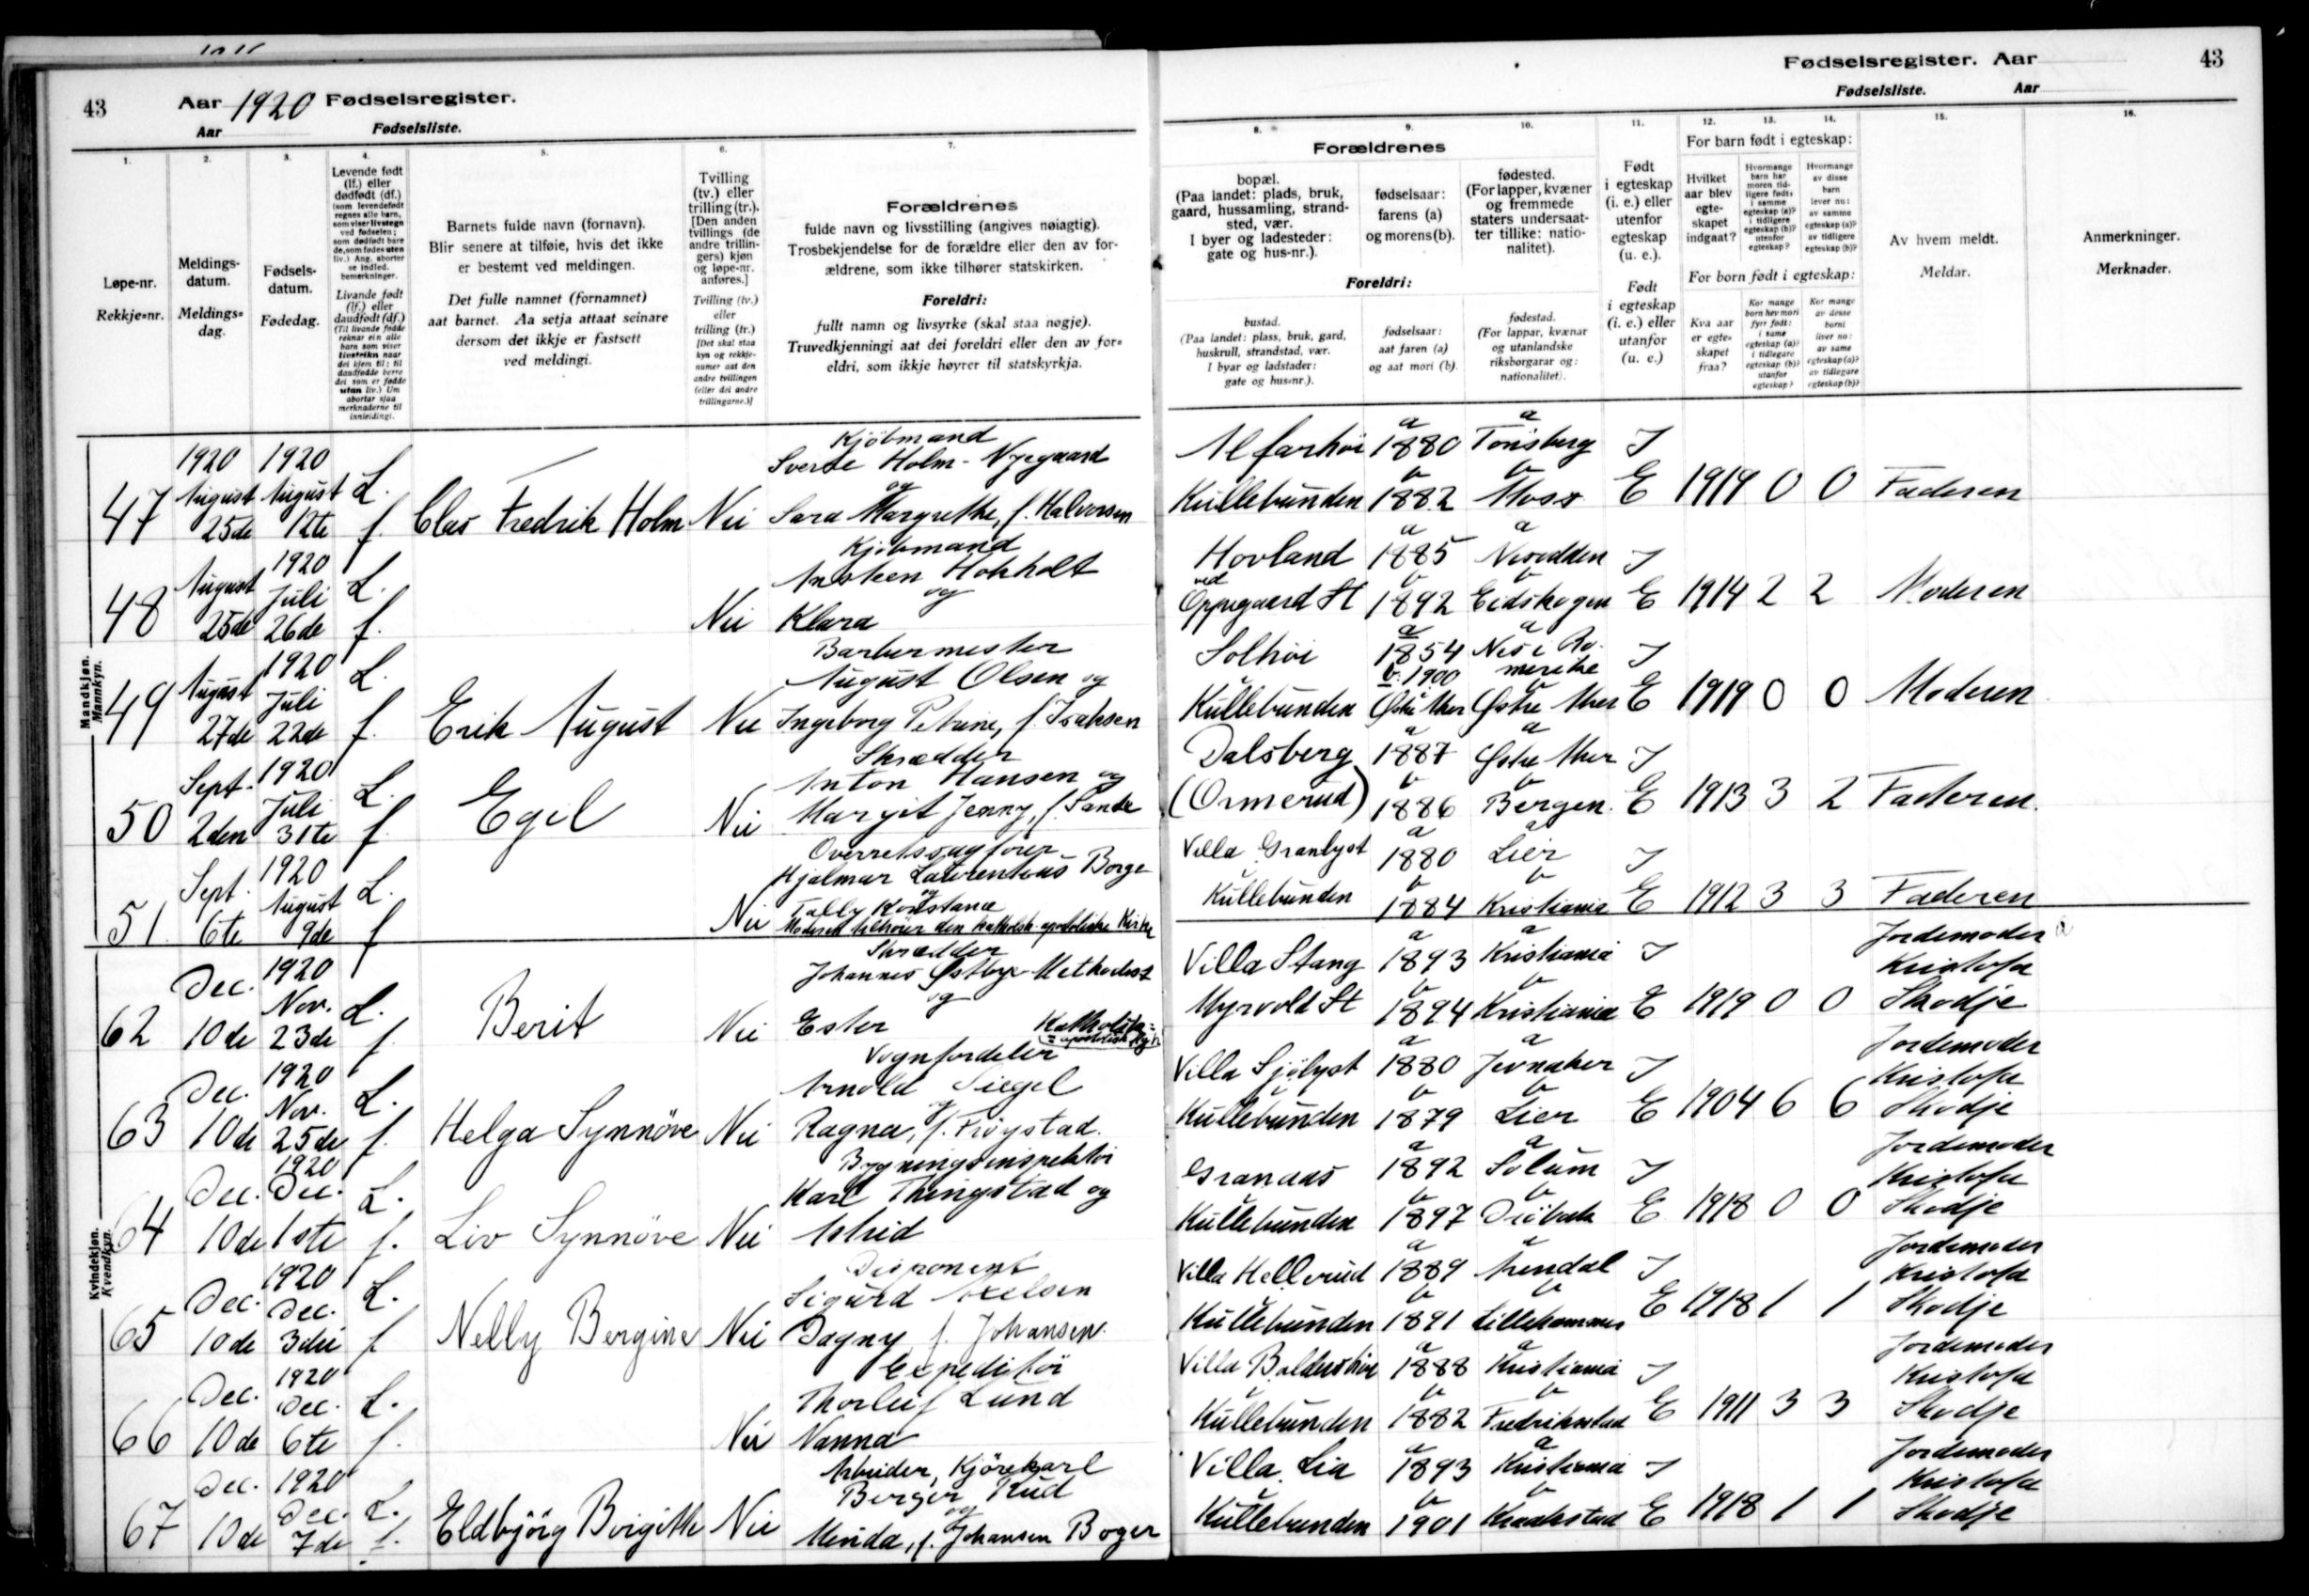 43 Aar 1920 Fødselsregister.
Aar Fødselsliste.
Fødselsregister. Aar 43
Fødselsliste. Aar
1. 2. 3. 4. 5. 6. 7.
Løpe-nr.
Rekkje=nr.
Meldings-
datum.
Meldings=
dag.
Fødsels-
datum.
Fødedag.
Levende født
(lf.) eller
dødfødt (df.)
(som levendefødt
regnes alle barn,
som viser livstegn
ved fødselen;
som dødfødt bare
de, som fødes uten
liv.) Ang. aborter
se indled.
bemerkninger.
Livande født
(lf.) eller
daudfødt (df.)
(Til livande fødde
reknar ein alle
barn som viser
livsteikn naar
dei kjem til; til
daudfødde berre
dei som er fødde
utan liv.) Um
abortar sjaa
merknaderne til
innleidingi.
Barnets fulde navn (fornavn).
Blir senere at tilføie, hvis det ikke
er bestemt ved meldingen.
Det fulle namnet (fornamnet)
aat barnet. Aa setja attaat seinare
dersom det ikkje er fastsett
ved meldingi.
Tvilling
(tv.) eller
trilling (tr.).
[Den anden
tvillings (de
andre trillin-
gers) kjøn
og løpe-nr.
anføres.]
Tvilling (tv.)
eller
trilling (tr.)
[Det skal staa
kyn og rekkje-
numer aat den
andre tvillingen
(eller dei andre
trillingarne.)]
Forældrenes
fulde navn og livsstilling (angives nøiagtig).
Trosbekjendelse for de forældre eller den av for-
ældrene, som ikke tilhører statskirken.
Foreldri:
fullt namn og livsyrke (skal staa nøgje).
Truvedkjenningi aat dei foreldri eller den av for=
eldri, som ikkje høyrer til statskyrkja.
8. 9. 10. 11. 12. 13. 14. 15. 16.
Forældrenes
bopæl.
(Paa landet: plads, bruk,
gaard, hussamling, strand-
sted, vær.
I byer og ladesteder:
gate og hus-nr.).
fødselsaar:
farens (a)
og morens (b).
fødested.
(For lapper, kvæner
og fremmede
staters undersaat-
ter tillike: natio-
nalitet).
Foreldri:
bustad.
(Paa landet: plass, bruk, gard,
huskrull, strandstad, vær.
I byar og ladstader:
gate og hus=nr.).
fødselsaar:
aat faren (a)
og aat mori (b).
fødestad.
(For lappar, kvænar
og utanlandske
riksborgarar og:
nationalitet).
Født
i egteskap
(i. e.) eller
utenfor
egteskap
(u. e.).
Født
i egteskap
(i. e.) eller
utanfor
(u. e.)
For barn født i egteskap:
Hvilket
aar blev
egte-
skapet
indgaat?
Hvormange
barn har
moren tid-
ligere født:
i samme
egteskap (a)?
i tidligere
egteskap (b)?
utenfor
egteskap?
Hvormange
av disse
barn
lever nu:
av samme
egteskap (a)?
av tidligere
egteskap (b)?
For born født i egteskap:
Kva aar
er egte=
skapet
fraa?
Kor mange
born hev mori
fyrr født:
i same
egteskap (a)?
i tidlegare
egteskap (b)?
utanfor
egteskap?
Kor mange
av desse
borni
liver no:
av same
egteskap (a)?
av tidlegare
egteskap (b)?
Av hvem meldt.
Meldar.
Anmerkninger.
Merknader.
Mandkjøn.
Mannkyn.
47 1920 August 25de 1920 August 12te L. f. Clas Fredrik Holm Nei
Kjöbmand
Sverre Holm-Nygaard
og
Sara Margrethe, f. Halvorsen
Alfarhöi a 1880 a Tønsberg I
Kullebunden b 1882 b Moss E 1919 0 0 Faderen
48 August 25de 1920 Juli 26de L. f. Nei
Kjöbmand
Hokholt
og
Klara
Hovland a 1885 a Nesodden I
ved
Oppegaard St b 1892 b Eidskogen E 1914 2 2 Moderen
49 August 27de 1920 Juli 22de L. f. Erik August Nei
Barbermester
August Olsen og
Ingeborg Petrine, f. Isaksen
Solhöi a 1854 a Nes i Ro-
merike I
Kullebunden b. 1900 Östre Aker b Østre Aker E 1919 0 0 Moderen
50 Sept. 2den 1920 Juli 31te L. f. Egil Nei
Skrædder
Anton Hansen og
Margit Jenny, f. Sande
Dalsberg a 1887 a Østre Aker I
(Ormerud) b 1886 b Bergen. E 1913 3 2 Faderen.
51 Sept. 6te 1920 August 9de L. f Nei
Overretssagförer
Hjalmar Laurentius Borge
og
Tally Konstance
Moderen tilhörer den katholsk apostoliske Kirke
Villa Granlyst a 1880 a Lier I
Kullebunden b 1884 b Kristiania E 1912 3 3 Faderen
Kvindekjøn.
Kvendkyn.
62 Dec. 10de 1920 Nov. 23de L. f. Berit Nei
Skrædder
Johannes Østbye Methodist
og
Ester
Villa Stang a 1893 a Kristiania I
Myrvold St b 1894 b Kristiania E 1919 0 0
Jordemoder
Kristofa
Skodje
63 Dec. 10de 1920 Nov. 25de L. f. Helga Synnöve Nei
Vognfordeler
Arnold Siegel
og
Ragna, f. Fröystad.
Villa Sjölyst a 1880 a Jevnaker I
Kullebunden b 1879 b Lier E 1904 6 6
Jordemoder
Kristofa
Skodje
64 Dec. 10de 1920 Dec. 1ste L. f. Liv Synnöve Nei
Bygningsinspektör
Karl Thingstad og
Astrid
Granaas a 1892 a Solum I
Kullebunden b 1897 b Dröbak E 1918 0 0
Jordemoder
Kristofa
Skodje
65 Dec. 10de 1920 Dec. 3die L. f Nelly Bergine Nei
Disponent
Sigurd Axelsen
Dagny f. Johansen.
Villa Hellerud a 1889 a Arendal I
Kullebunden b 1891 b Lillehammer E 1918 1 1
Jordemoder
Kristofa
Skodje
66 Dec. 10de 1920 Dec. 6te L. f. Nei
Expeditör
Thorleif Lund
Nanna
Villa a 1888 a Kristiania I
Kullebunden b 1882 b Fredrikstad E 1911 3 3
Jordemoder
Kristofa
Skodje
67 Dec. 10de 1920 Dec. 7de L. f. Eldbjörg Birgitte Nei
Arbeider, Kjörekarl
Berger Rud
og
Minda, f. Johansen Boger
Villa Lia a 1893 a Kristiania I
Kullebunden b 1901 b Kraakstad E 1918 1 1
Jordemoder
Kristofa
Skodje